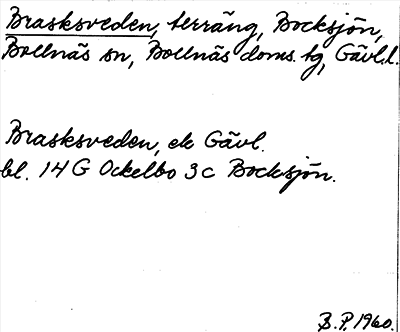 Brasksveden, terräng, Bocksjön,
Bollnäs sn, Bollnäs doms. tg, Gävl.l.
Brasksveden, ek Gävl.
bl. 14 G Ockelbo 3 c Bocksjön.
B.P. 1960.